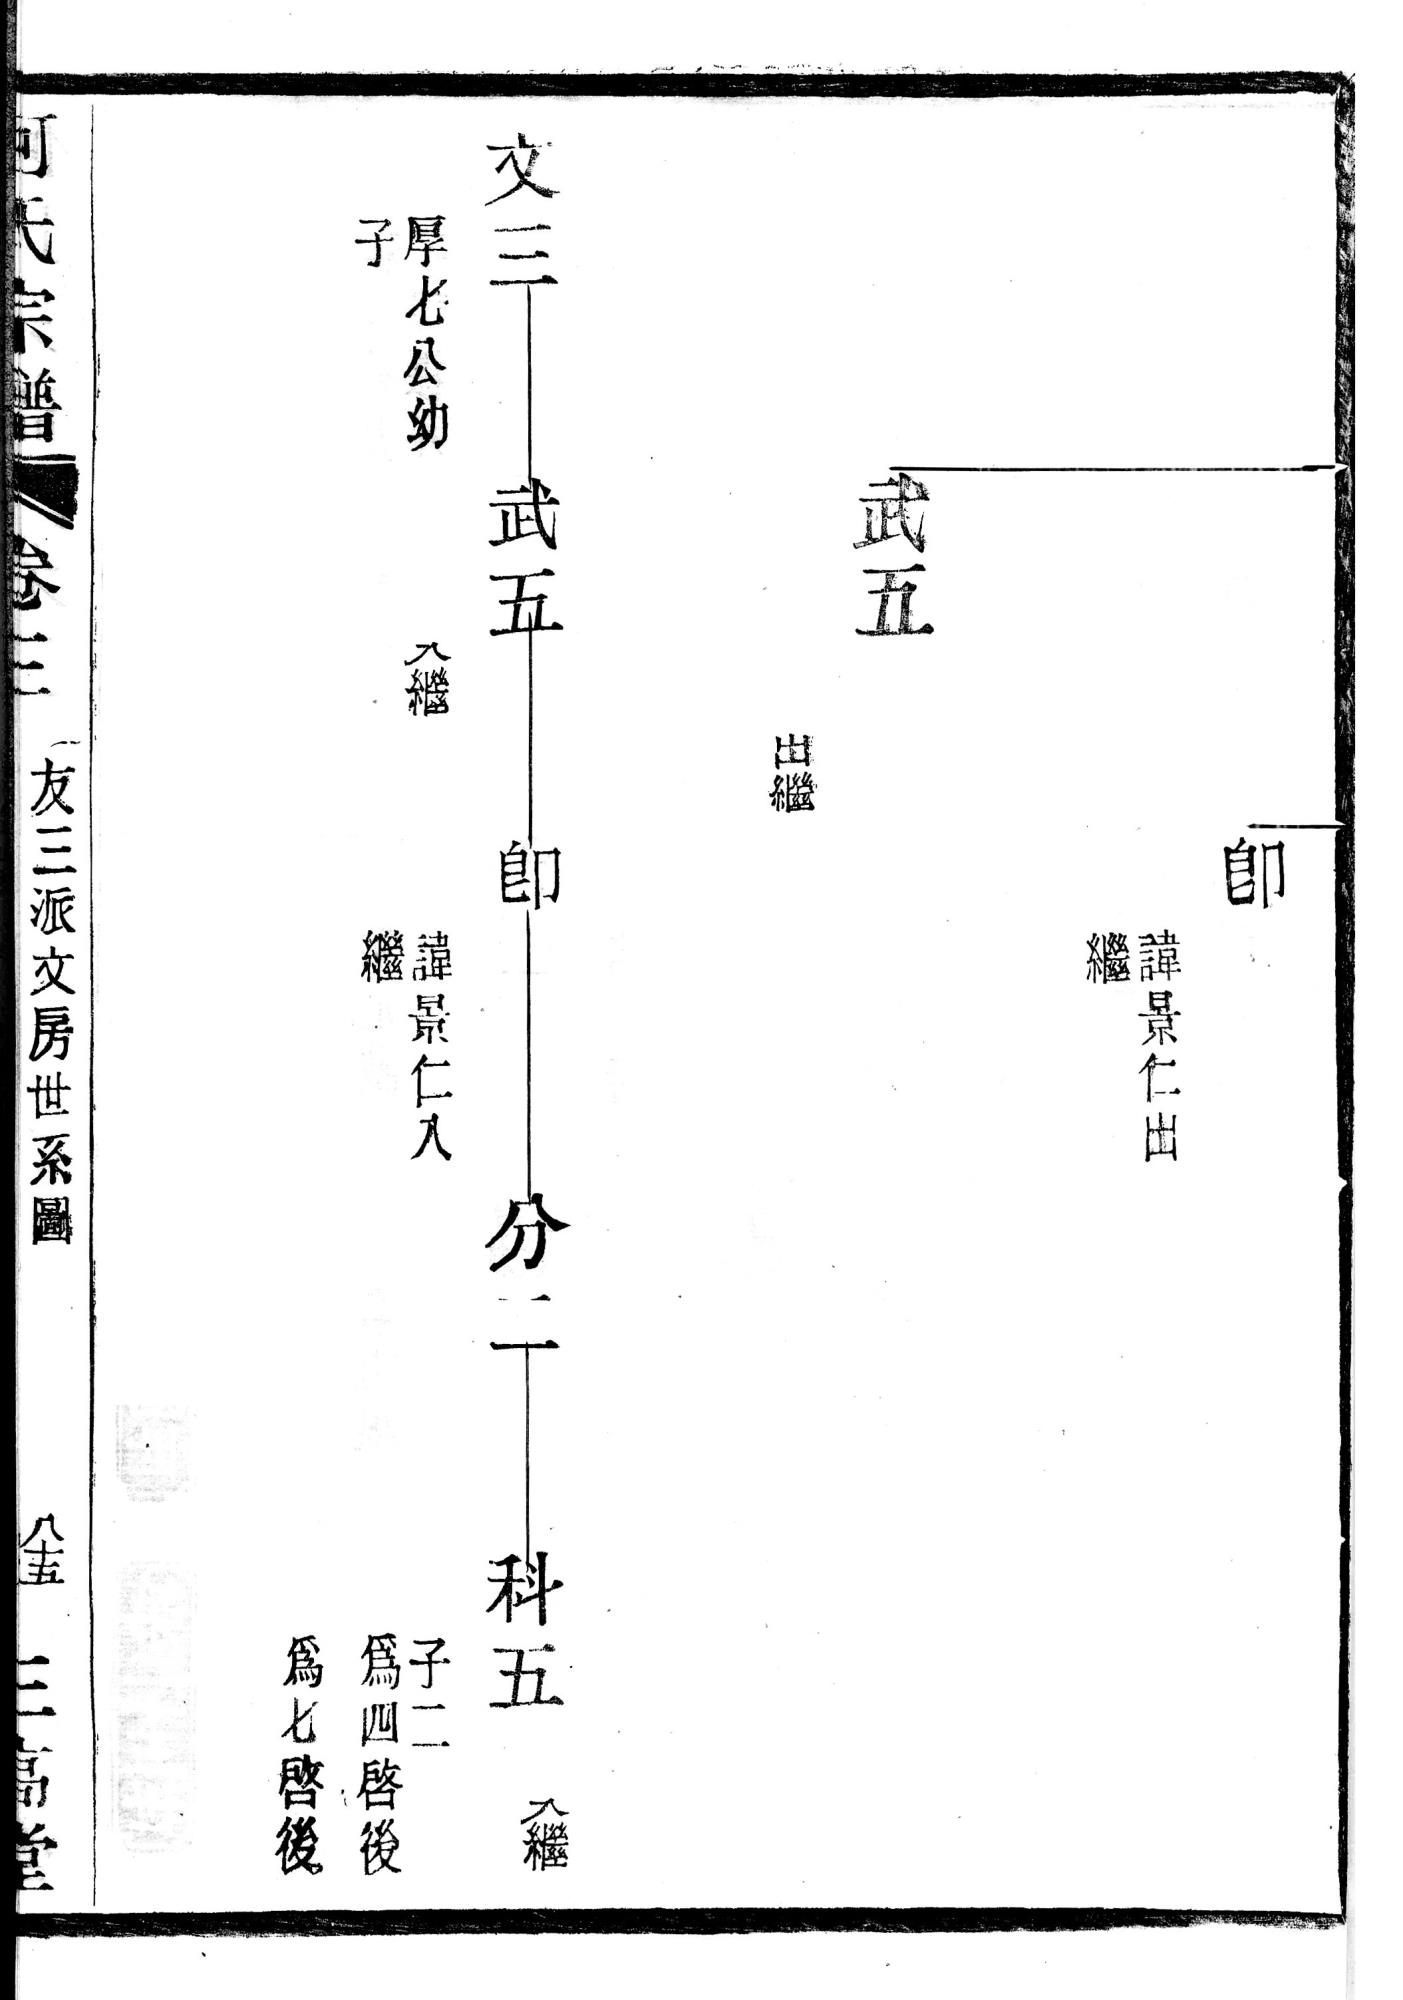 卽
諱景仁出
繼
武五
出繼
文三
厚七公幼
子
武五
入繼
卽
諱景仁入
繼
分二
科五
入繼
子二
爲四啓後
爲七啓後
何氏宗譜
卷三
友三派文房世系圖
八十五
三高堂